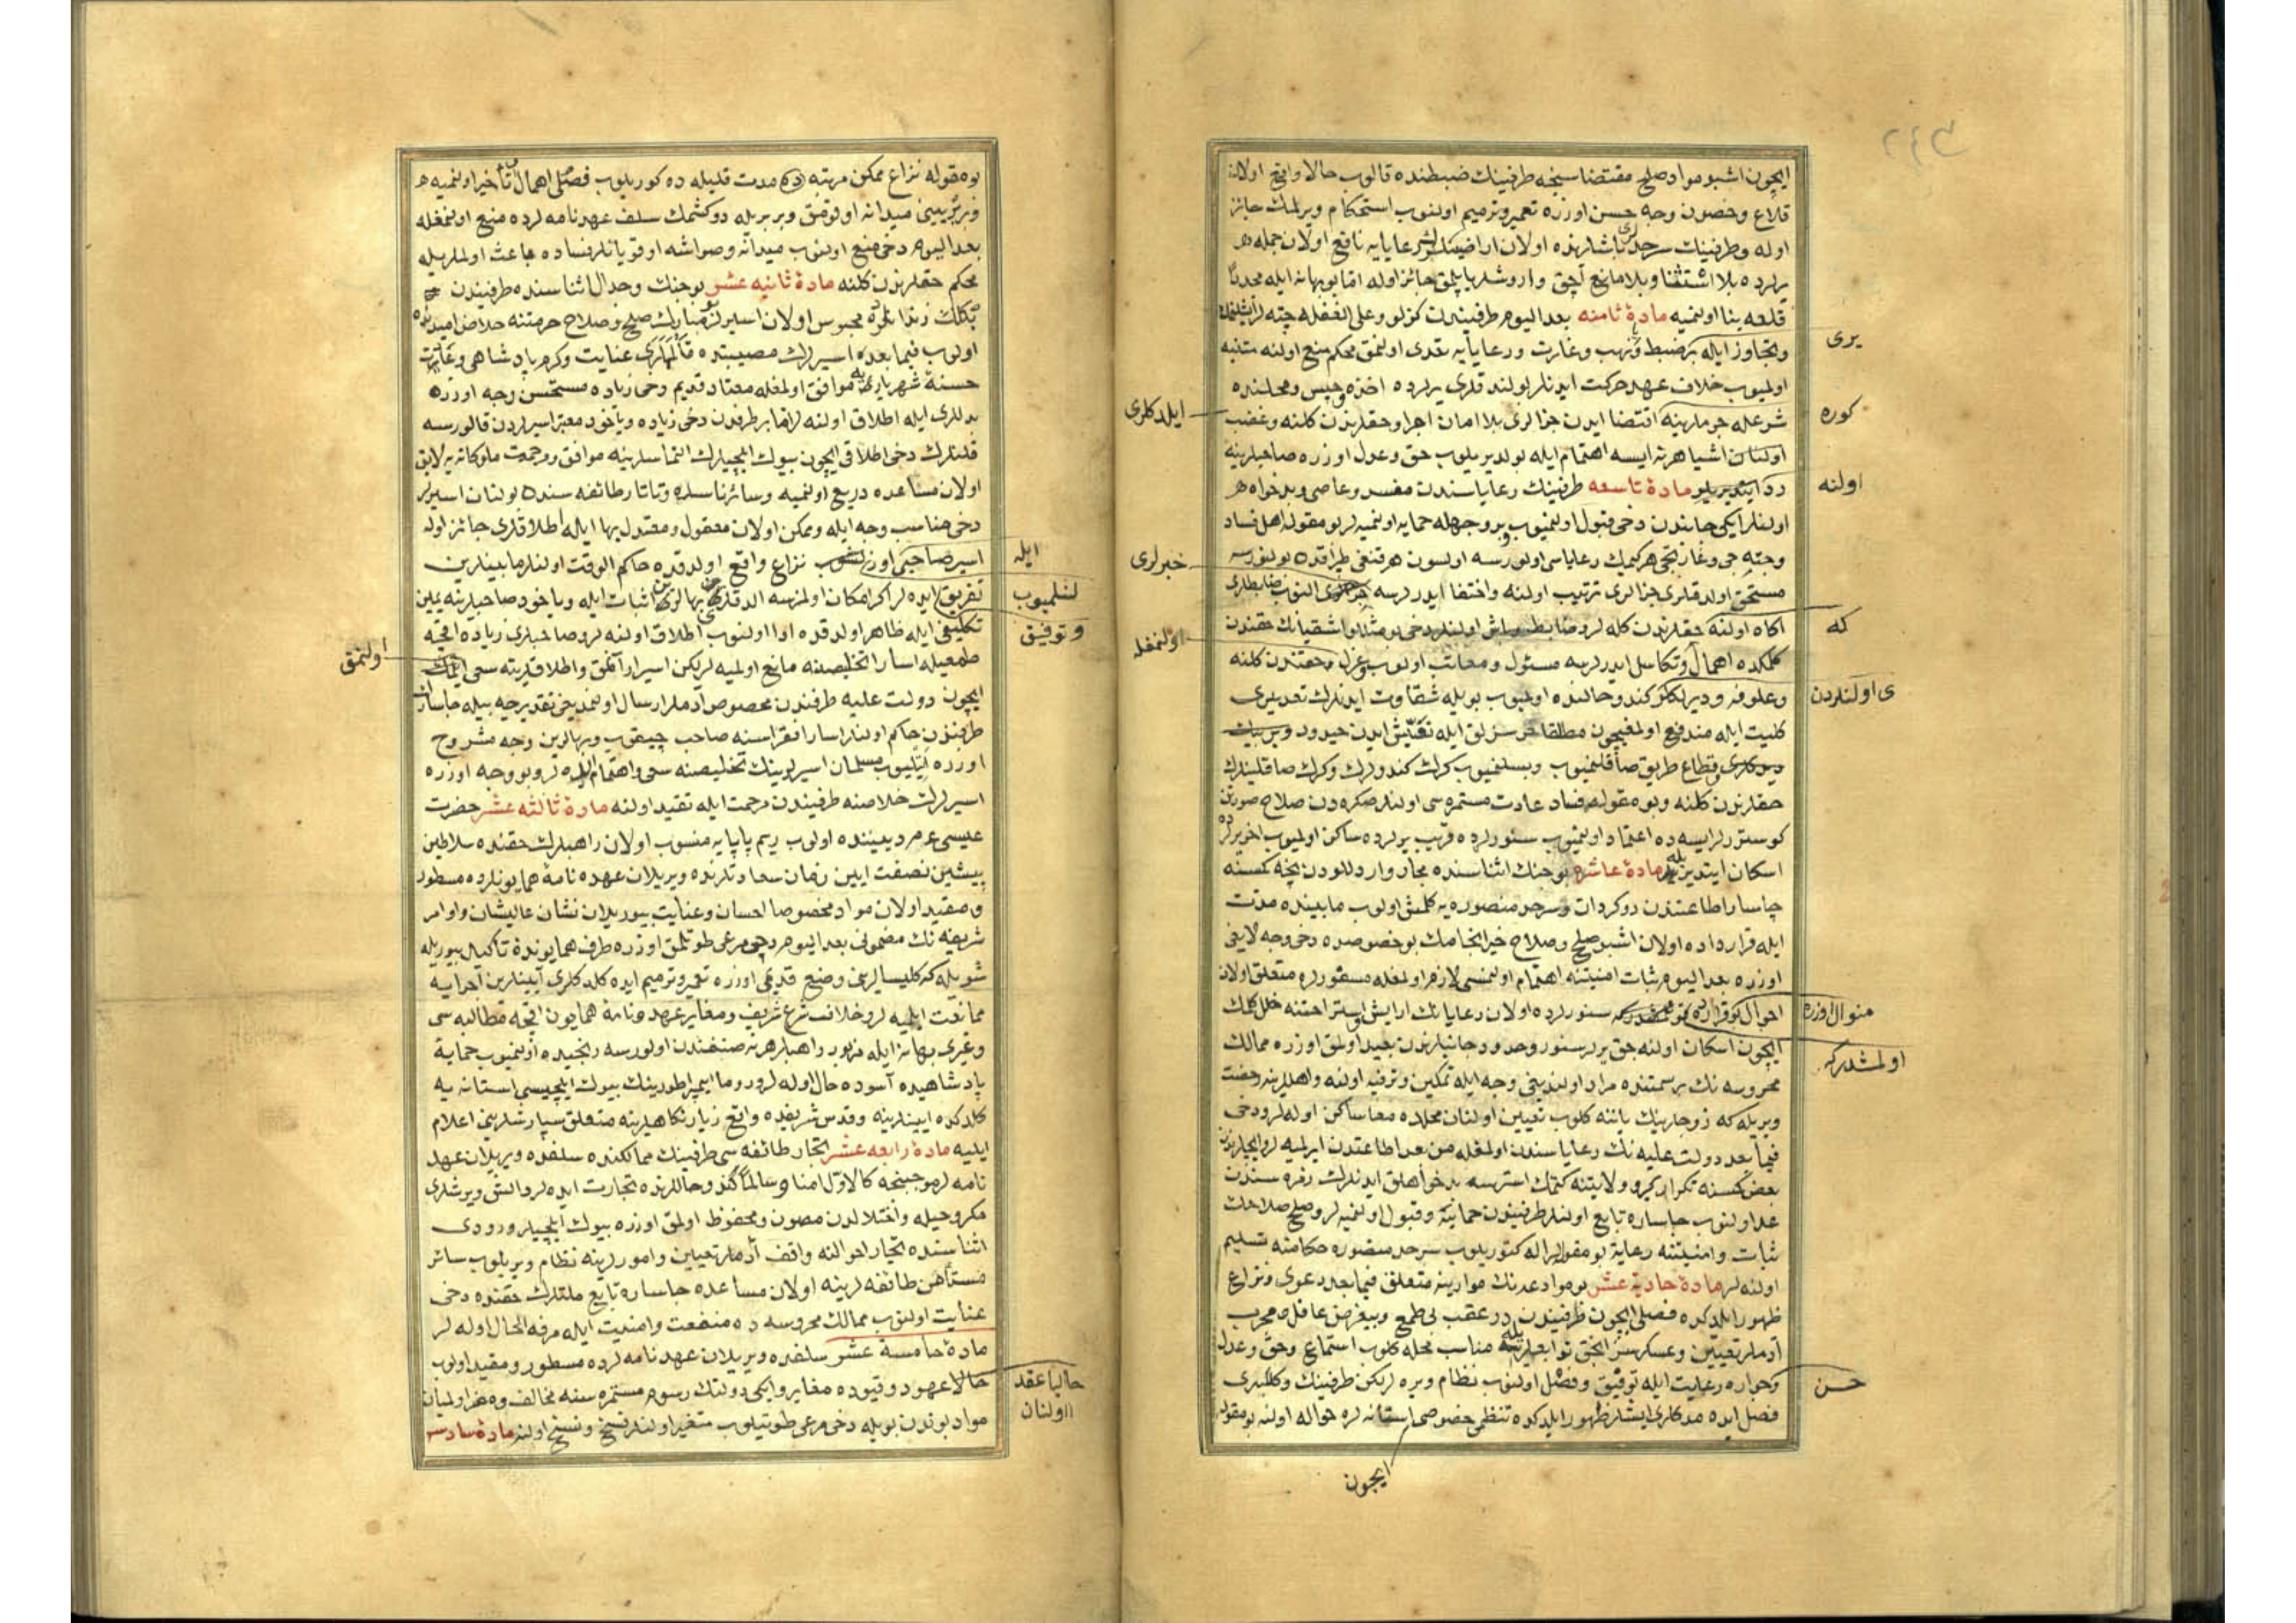 ٢٤٣
ایچون اشبو مواد صلح مقتضاسنجه طرفینك ضبطنده قالوب حالا واقع اولان
قلاع وحصون وجه حسن اوزره تعمیر وترمیم اولنوب استحکام ویرلمك جائز
اوله وطرفینك سرحد باشلرنده اولان اراضینك رعایایه نافع اولان جمله
یرلرده بلا استثنا وبلا مانع آچق واروشلر یاپلمق جائز اوله اما بو بهانه ایله مجددا
قلعه بنا اولنمیه مادۀ ثامنه بعد الیوم طرفیندن کزلو وعلی الغفله چته
وتجاوز ایله یر ضبط ونهب وغارت ورعایایه تعدی اولنمق محکم منع اولنه متنبه
اولمیوب خلاف عهد حرکت ایدنلر بولندقلری یرلرده اخذ وحبس ومحلنده
شرعله جرملرینه اقتضا ایدن جزالری بلا امان اجرا وحقلرندن کلنه وغصب
اولنان اشیا هر نه ایسه اهتمام ایله بولدیریلوب حق وعدل اوزره صاحبلرینه
رد مادۀ تاسعه طرفینك رعایاسندن مفسد وعاصی وبدخواه
اولنلر ایکی جانبدن دخی قبول اولنمیوب بر وجهله حمایه اولنمیه لر بو مقوله اهل فساد
وچته جی وغارتجی هر کیمك رعایاسی اولورسه اولسون هر قنغی طرفده بولنورسه
مستحق اولدقلری جزالری ترتیب اولنه واختفا ایدرلرسه النوب ضابطلری
آکاه اولنه حقلرندن کله لر وضابط وباش اولنلر دخی بو مثللو اشقیانك حقندن
کلمکده اهمال وتکاسل ایدرلرسه مسئول ومعاتب اولوب عزل وحقندن کلنه
کلیت ایله مندفع اولمغیچون مطلقا خرسزلق ایله تعیش ایدن حیدود
قطاع طریق صاقلنمیوب وبسلنمیوب کرك کندولرك وکرك صاقلینلرك
حقلرندن کلنه وبو مقوله فساد عادت مستمره سی اولنلر صکره دن صلاح صورتن
کوسترلر ایسه ده اعتماد اولنمیوب سنورلرده قریب یرلرده ساکن اولمیوب اخر یرلرده
اسکان ایتدیریله مادۀ عاشره بو جنك اثناسنده مجار واردللودن نیچه کسنه
چاسار اطاعتندن دوکردانت وسرحد منصوره یه کلمش اولوب مابینده مدت
ایله قرار داده اولان اشبو صلح وصلاح خیر انجامك بو خصوصده دخی وجه لایقی
اوزره بعد الیوم ثبات امنیتنه اهتمام اولنمسی لازم اولمغله مسفورلره متعلق اولان
احوال سنورلرده اولان رعایانك ارایش واستراحتنه خلل کلمك
ایچون اسکان اولنه جق یرلر سنور وحدود جانبلرندن بعید اولمق اوزره ممالك
محروسه نك بر سمتنده مراد اولندیغی وجه ایله تمکین وترفیه اولنه واهللرینه رخصت
ویریله که زوجلرینك یاننه کلوب تعیین اولنان محلده معا ساکن اوله لر ودخی
فیما بعد دولت علیه نك رعایاسندن اولمغله من بعد اطاعتدن ایرلمیه لر وایچلرندن
بعض کسنه تکرار کیرو ولایتنه کتمك استرسه بدخواهلق ایدنلرك زمره سندن
عد اولنوب چاساره تابع اولنلر طرفیندن حمایة وقبول اولنمیه لر وصلح صلاحك
ثبات وامنیتنه رعایة بو مقوله لر اله کتوریلوب سرحد منصوره حکامنه تسلیم
اولنه لر مادۀ حادیه عشر بو مواد عدنك موادینه متعلق فیما بعد دعوی ونزاع
ظهور ایلدکده فصلی ایچون طرفیندن در عقب بی طمع وبیغرض عاقل ومجرب
آدملر تعیین وعسکرسز انجق توابعلریله مناسب محله کلوب استماع وحق وعدل
وجواره رعایت ایله توفیق وفصل اولنوب نظام ویره لر لکن طرفینك وکللری
فصل ایده مدکلری ایشلر ظهور ایلدکده تنظیمی خصوصی استانه لره حواله اولنه بو مقوله
یری
کوره
اولنه
که
ی اولنلردن
منوال اوزره
اولمشدر که
حسن
ایلدکلری
خبرلری
اولنمغله
ایچون
بو مقوله نزاع ممکن مرتبه ده مدت قلیله ده کوریلوب فصلی اهمال وتأخیر اولنمیه
وبربرینی میدانه اوقومق وبربریله دوکشمك سلف عهدنامه لرده منع اولنمغله
بعد الیوم دخی منع اولنوب میدانه وصواشه اوقویانلر فساده باعث اولملریله
محکم حقلرندن کلنه مادۀ ثانیه عشر بو جنك وجدال اثناسنده طرفیندن
بکلك زندانلرده محبوس اولان اسیرلر بو مبارك صلح وصلاح حرمتنه خلاص امیدنده
اولوب فیما بعده اسیرلك مصیبتده قالملری عنایت وکرم پادشاهی
حسنۀ شهریاری یه موافق اولمغله معتاد قدیم دخی زیاده مستحسن وجه اوزره
بدللری ایله اطلاق اولنه لر اما بر طرفدن دخی زیاده ویاخود معتبر اسیرلردن قالورسه
قلنلرك دخی اطلاقی ایچون بیوك ایلچیلرك التماسلرینه موافق ومرحمت ملوکانه یه لایق
اولان مساعده دریغ اولنمیه وسائر ناسده وتاتار طائفه سنده بولنان اسیرلر
دخی مناسب وجه ایله وممکن اولان معقول ومعتدل بها ایله اطلاقلری جائز اوله
اسیر صاحبی نزاع واقع اولدقده حاکم الوقت اولنلر مابینلرین
تفریق ایده لر اکر امکان اولمزسه الدقلری بهالرین اثبات ایله ویاخود صاحبلرینه یمین
تکلیفی ایله ظاهر اولدقده ادا اولنوب اطلاق اولنه لر وصاحبلری زیاده اقچه
طمعیله اسارا تخلیصنه مانع اولمیه لر لکن اسیر ارامق واطلاقلرینه سعی
ایچون دولت علیه طرفندن مخصوص آدملر ارسال اولنمدیغی تقدیرجه بیله چاسارك
طرفندن حاکم اولنلر اسارا فقراسنه صاحب چیقوب وبهالرین وجه مشروح
اوزره ایتلیوب مسلمان اسیرلرینك تخلیصنه سعی واهتمام ایده لر وبو وجه اوزره
اسیرلرك خلاصنه طرفیندن مرحمت ایله تقید اولنه مادۀ ثالثه عشر حضرت
عیسی ع م دیننده اولوب ریم پاپایه منسوب اولان راهبلرك حقنده سلاطین
پیشین نصفت ایین زمان سعادتلرنده ویریلان عهده نامۀ همایونلرده مسطور
ومقید اولان مواد مخصوصا احسان وعنایت بیوریلان نشان عالیشان واوامر
شریفه نك مضمونی بعد الیوم دخی مرعی طوتلمق اوزره طرف همایوندن تأکید بیوریله
شویله که کلیسالرینی وضع قدیمی اوزره تعمیر وترمیم ایده کلدکلری آیینلرین اجرایه
ممانعت ایلمیه لر وخلاف شرع شریف ومغایر عهدنامۀ همایون اقچه مطالبه سی
وغیری بهانه ایله مزبور راهبلر هر نه صنفندن اولورسه رنجیده اولنمیوب حمایۀ
پادشاهیده آسوده حال اوله لر وروما ایمپراطورینك بیوك ایلچیسی استانه یه
کلدکده ایینلرینه وقدس شریفده واقع زیارتکاهلرینه متعلق سپارشلرینی اعلام
ایلیه مادۀ رابعه عشر تجار طائفه سی طرفینك ممالکنده سلفده ویریلان عهد
نامه لر موجبنجه کالاول امنا وسالما کندو حاللرنده تجارت ایده لر والش ویرشلری
مکر وحیله واختلالدن مصون ومحفوظ اولمق اوزره بیوك ایلچیلر ورودی
اثناسنده تجار احوالنه واقف آدملر تعیین وامورلرینه نظام ویریلوب سائر
مستأمن طائفه لرینه اولان مساعده چاساره تابع ملتلرك حقنده دخی
عنایت اولنوب ممالك محروسه ده منفعت وامنیت ایله مرفه الحال اوله لر
مادۀ خامسه عشر سلفده ویریلان عهدنامه لرده مسطور ومقید اولوب
حالا عهود وقیوده مغایر وایکی دولتك رسوم مستمره سنه مخالف ومضر اولمیان
مواد بوندن بویله دخی مرعی طوتیلوب متغیر اولنلر فسخ ونسخ اولنه مادۀ سادسه
ایله
لنلمیوب
وتوفیق
حالیا عقد
اولنان
اولنمق